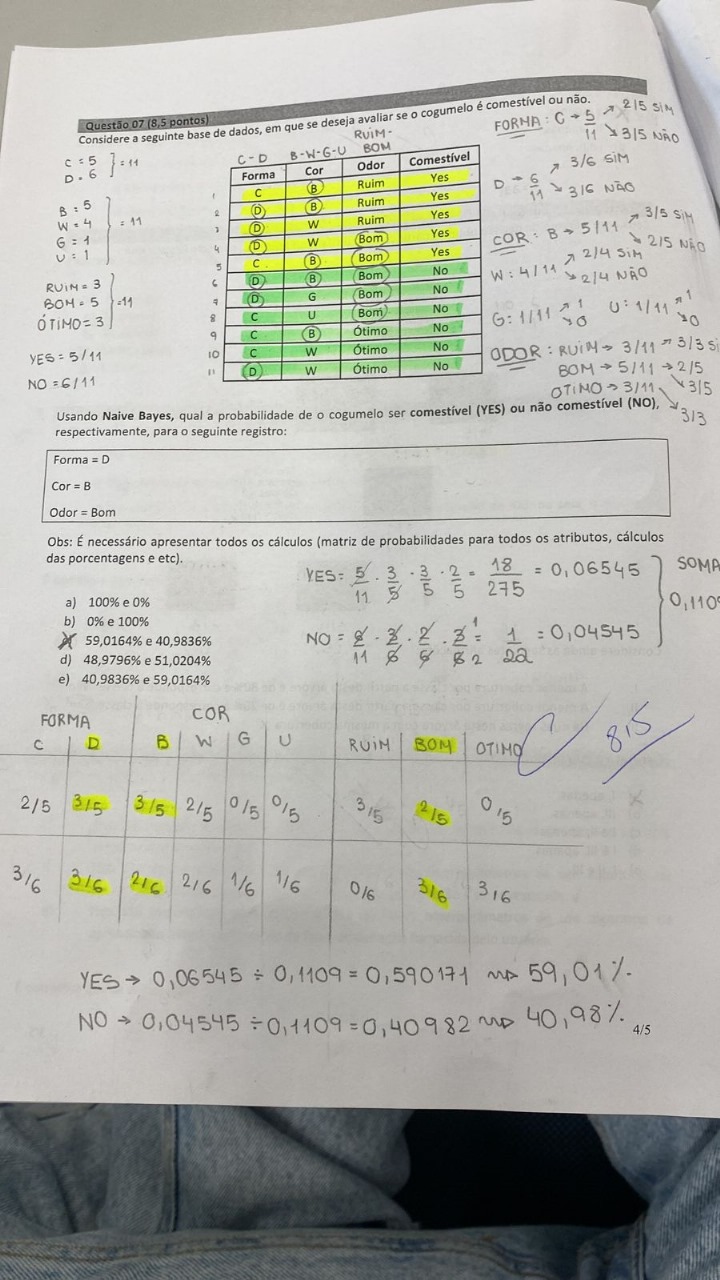 Questão 07 (8,5 pontos)
Considere a seguinte base de dados, em que se deseja avaliar se o cogumelo é comestível ou não.
C = 5
D = 6
} = 11
B = 5
W = 4
G = 1
U = 1
= 11
RUIM = 3
BOM = 5
ÓTIMO = 3
=11
YES = 5/11
NO = 6/11
C - D
B-W-G-U
RUIM-
BOM
Forma Cor Odor Comestível
1 C B Ruim Yes
2 D B Ruim Yes
3 D W Ruim Yes
4 D W Bom Yes
5 C B Bom Yes
6 D B Bom No
7 D G Bom No
8 C U Bom No
9 C B Ótimo No
10 C W Ótimo No
11 D W Ótimo No
FORMA : C → 5/11 ↗ 2/5 SIM
↘ 3/5 NÃO
D → 6/11 ↗ 3/6 SIM
↘ 3/6 NÃO
COR : B → 5/11 ↗ 3/5 SIM
↘ 2/5 NÃO
W : 4/11 ↗ 2/4 SIM
↘ 2/4 NÃO
G: 1/11 ↗ 1
↘ 0
U: 1/11 ↗ 1
↘ 0
ODOR : RUIM → 3/11 → 3/3
BOM → 5/11 → 2/5
↘ 3/5
OTIMO → 3/11
↘ 3/3
Usando Naive Bayes, qual a probabilidade de o cogumelo ser comestível (YES) ou não comestível (NO),
respectivamente, para o seguinte registro:
Forma = D
Cor = B
Odor = Bom
Obs: É necessário apresentar todos os cálculos (matriz de probabilidades para todos os atributos, cálculos
das porcentagens e etc).
YES = 5/11 · 3/5 · 3/5 · 2/5 = 18/275 = 0,06545
NO = 6/11 · 3/6 · 2/6 · 3/6 = 1/22 = 0,04545
SOMA
0,1109
a) 100% e 0%
b) 0% e 100%
59,0164% e 40,9836%
d) 48,9796% e 51,0204%
e) 40,9836% e 59,0164%
FORMA COR
C D B W G U RUIM BOM OTIMO
2/5 3/5 3/5 2/5 0/5 0/5 3/5 2/5 0/5
3/6 3/6 2/6 2/6 1/6 1/6 0/6 3/6 3/6
8,5
YES → 0,06545 ÷ 0,1109 = 0,590171 → 59,01%
NO → 0,04545 ÷ 0,1109 = 0,40982 → 40,98%
4/5